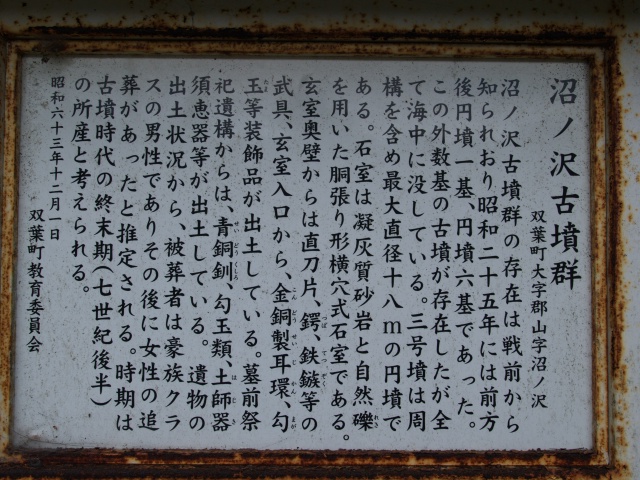 沼ノ沢古墳群
双葉町大字郡山字沼ノ沢
沼ノ沢古墳群の存在は戦前から
知られおり昭和二十五年には前方
後円墳一基、円墳六基であった。
この外数基の古墳が存在したが全
て海中に没している。三号墳は周
構を含め最大直径十八mの円墳で
ある。石室は凝灰質砂岩と自然礫
を用いた胴張り形横穴式石室である。
玄室奥壁からは直刀片、鍔、鉄鏃等の
武具、玄室入口から、金銅製耳環、勾
玉等装飾品が出土している。墓前祭
祀遺構からは、青銅釧、勾玉類、土師器
須恵器等が出土している。遺物の
出土状況から、被葬者は豪族クラ
スの男性でありその後に女性の追
葬があったと推定される。時期は
古墳時代の終末期(七世紀後半)
の所産と考えられる。
昭和六十三年十二月一日
双葉町教育委員会